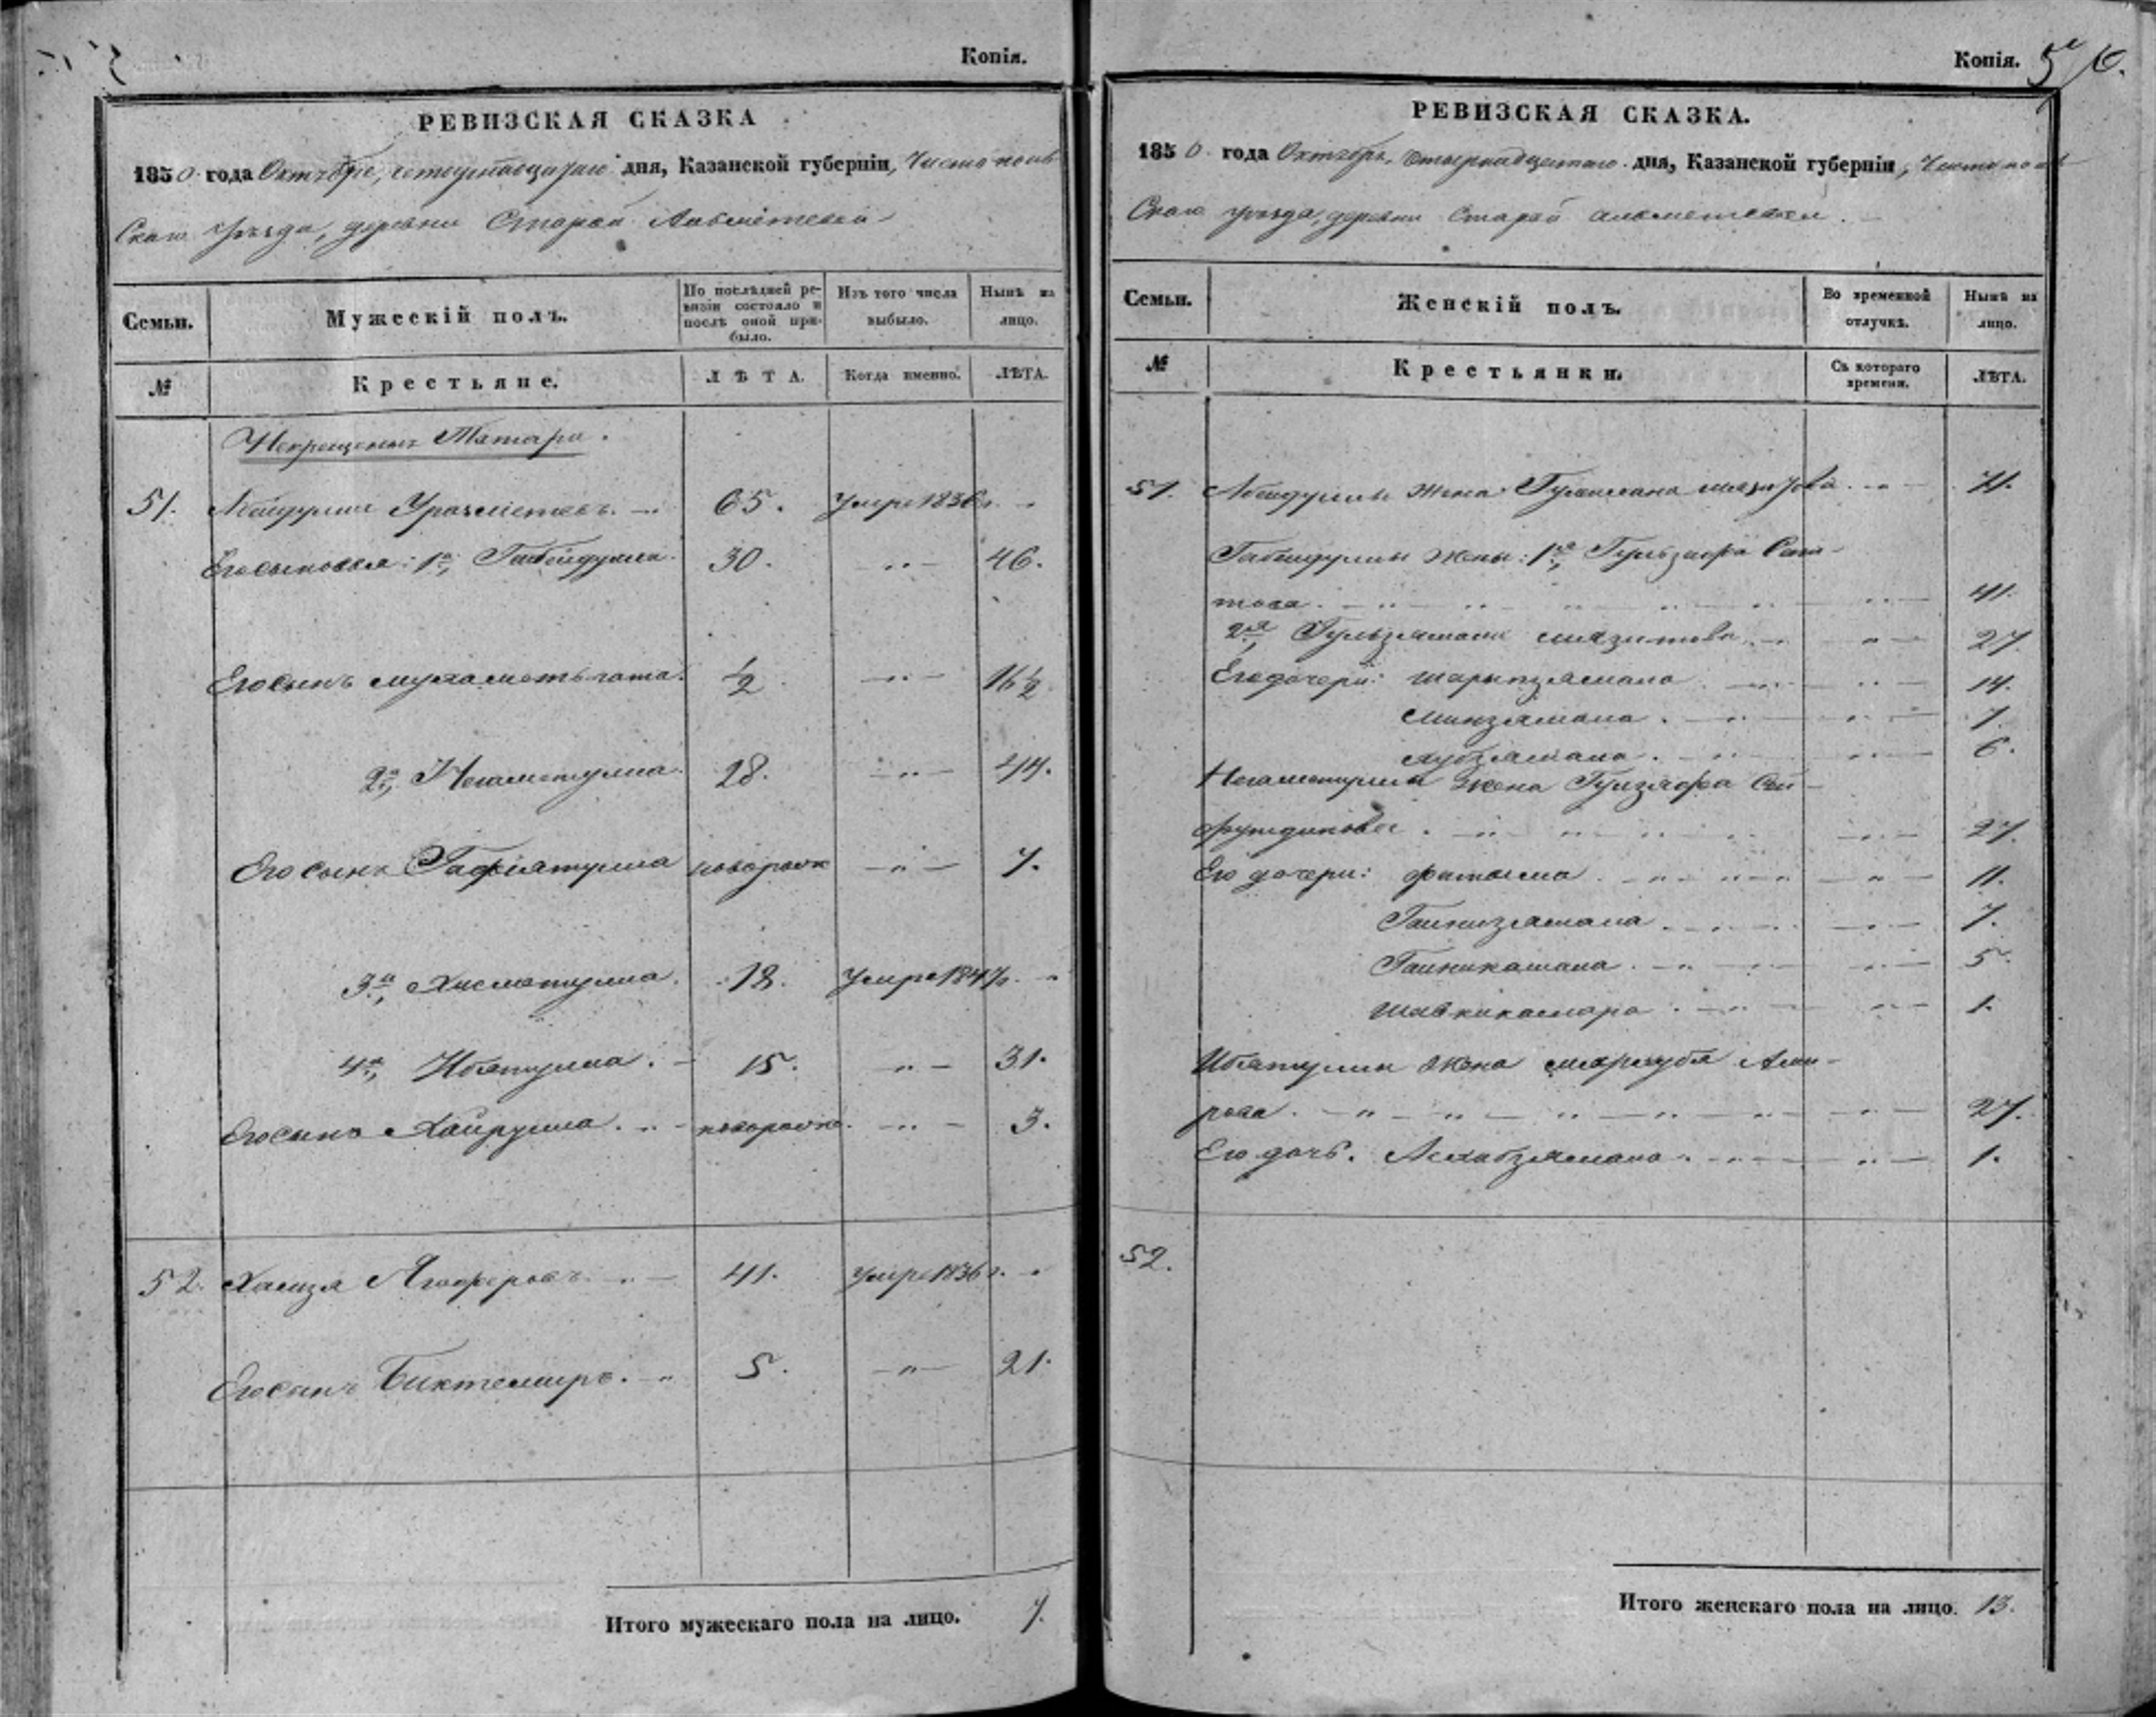 Копія.
РЕВИЗСКАЯ СКАЗКА
1850 года Октября, четырнадцатаго дня, Казанской губерніи, Чистополь
скаго уѣзда, деревни Старой Альметевой
Семьи. Мужескій полъ. По послѣдней ревизіи состояло и послѣ оной прибыло. Изъ того числа выбыло. Нынѣ на лицо.
№ Крестьяне. ЛѢТА. Когда именно. ЛѢТА.
Некрещеных Татаръ.
51. Ураzметевъ. 65. Умре 1836 г.
Его сыновья: 1й, Габейдулла 30. 46.
Его сынъ Мухаметьгата. ½ 16½
2й, Негаметулла 28. 44.
Его сынъ Гафіятулла новорожд 7.
3й, Хисметулла. 18. Умре 1847 г.
4й, Ибятулла. 15. 31.
Его сынъ Хайрулла. новорожд. 3.
52. Хамзя Ягоферовъ 41. Умре 1836 г.
Его сынъ Биктемиръ. 5. 21.
Итого мужескаго пола на лицо. 7.
Копія. 576.
РЕВИЗСКАЯ СКАЗКА.
1850 года Октября, четырнадцатаго дня, Казанской губерніи, Чистополь
скаго уѣзда, деревни Старой Альметевой.
Семьи. Женскій полъ. Во временной отлучкѣ. Нынѣ на лицо.
№ Крестьянки. Съ котораго времени. ЛѢТА.
51. жена 71.
Габейдуллы жены: 1я, Гульзяфра Саи
това. 41.
2я, Гульзямала Мязитова 27.
Его дочери: Шарыпзямала 14.
Минзямала. 7.
Хубзямала. 6.
Негаметуллы жена Гулзяфа Сей
футдинова. 27.
Его дочери: Фатыма 11.
Гайнизямала. 7.
Гайникамала. 5.
Шавкикамара. 1.
Ибятуллы жена Мяргуба Ами
рова. 27.
Его дочь. Асхабзямала. 1.
52.
Итого женскаго пола на лицо. 13.